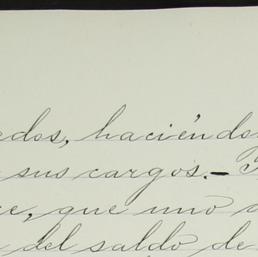 edos, haciéndo
sus cargos.—
ce, que uno
del saldo de